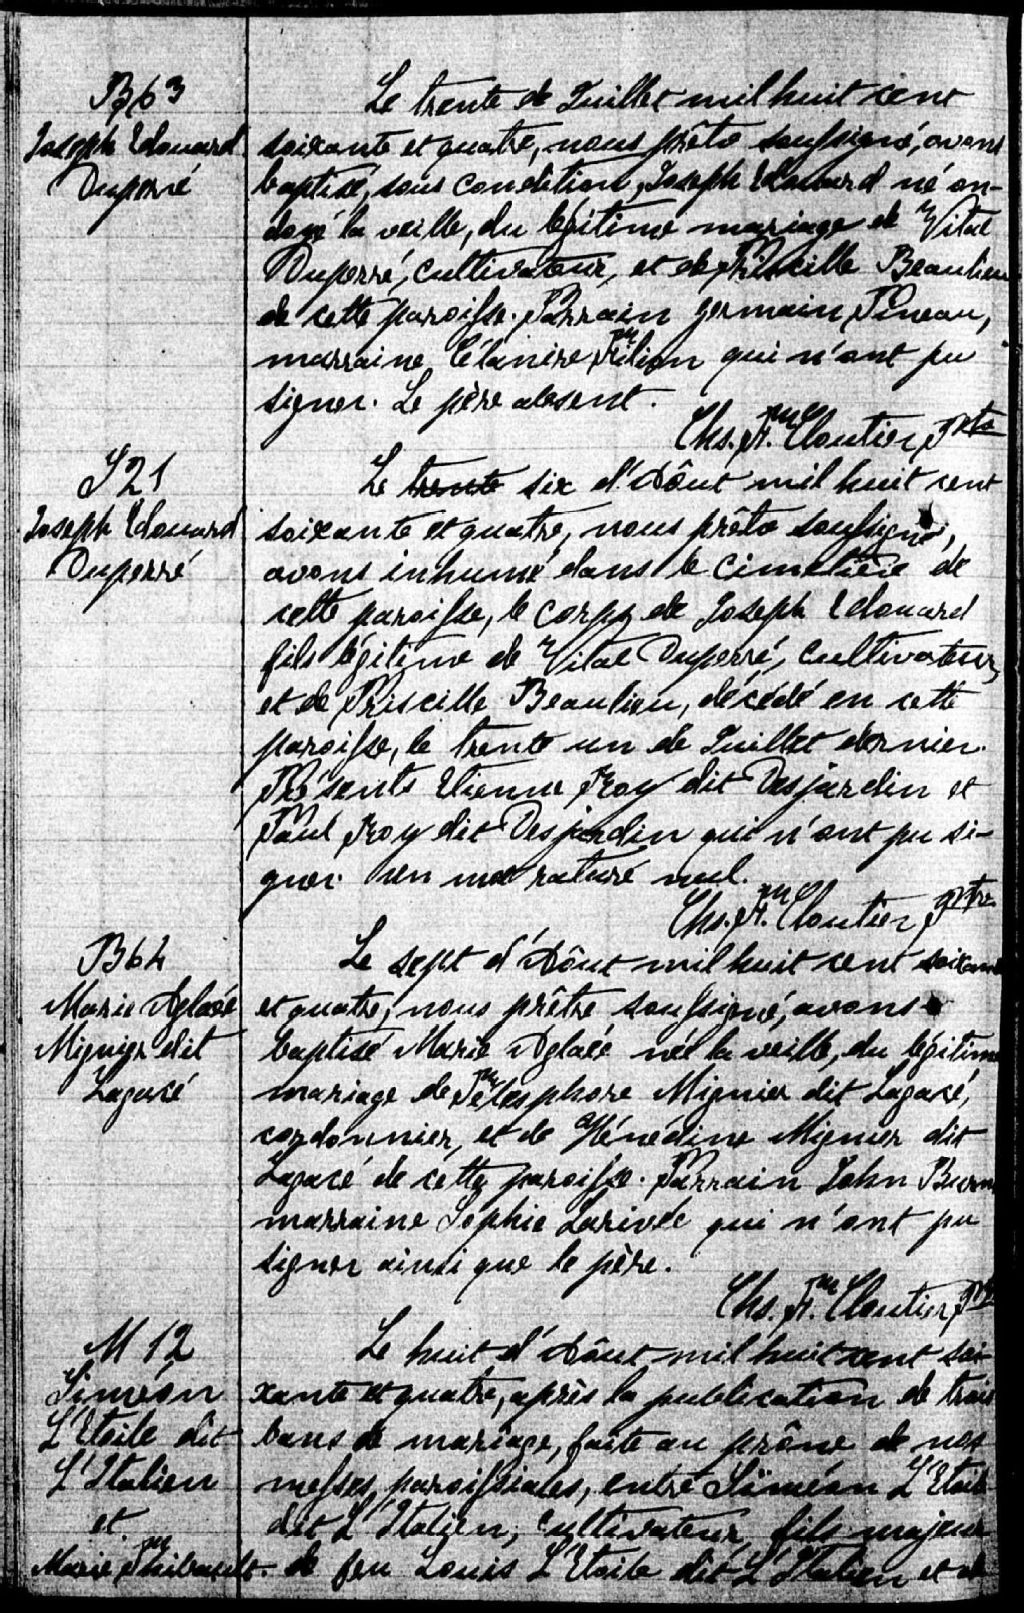 B63
Joseph Edouard
Duperré
Le trente de Juillet mil huit cent
soixante et quatre, nous prêtre soussigné, avons
baptisé, sous condition, Joseph Edouard né on-
doyé la veille, du légitime mariage de Vital
Duperré, cultivateur, et de Priscille Beaulieu
de cette paroisse. Parrain Germain Pineau,
marraine Célanire Filion qui n'ont pu
signer. Le père absent.
Chs. F. Cloutier Ptre
S21
Joseph Edouard
Duperré
Le trente six d'Août mil huit cent
soixante et quatre, nous prêtre soussigné,
avons inhumé dans le cimetière de
cette paroisse, le corps de Joseph Edouard
fils légitime de Vital Duperré, cultivateur,
et de Priscille Beaulieu, décédé en cette
paroisse, le trente un de Juillet dernier.
Présents Etienne Roy dit Desjardin et
Paul Roy dit Desjardin qui n'ont pu si-
gner. un mot raturé nul.
Chs. F. Cloutier Ptre
B64
Marie Aglaée
Mignier dit
Lagacé
Le sept d'Août mil huit cent soixante
et quatre, nous prêtre soussigné, avons
baptisé Marie Aglaée née la veille, du légitime
mariage de Télesphore Mignier dit Lagacé,
cordonnier, et de Hénédine Mignier dit
Lagacé de cette paroisse. Parrain John
marraine Sophie Larivée qui n'ont pu
signer ainsi que le père.
Chs. F. Cloutier Ptre
M 12
Siméon
L'Etoile dit
L'Italien
et
Marie Thibault.
Le huit d'Août mil huit cent soi-
xante et quatre, après la publication de trois
bans de mariage, faite au prône de nos
messes paroissiales, entre Siméon L'Etoile
dit L'Italien, cultivateur, fils majeur
de feu Louis L'Etoile dit L'Italien et de